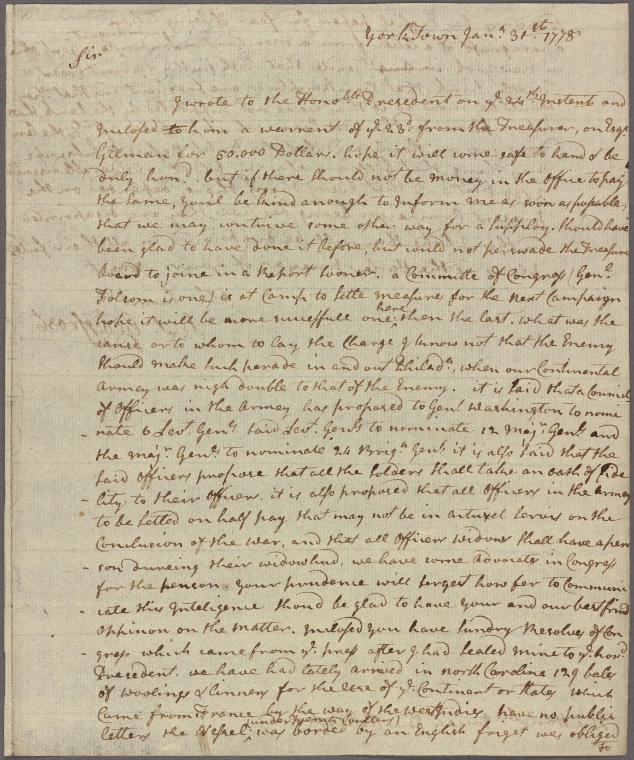 York Town Jan.y 31.st 1778
Sir
I wrote to the Hono.ble Presedent on y.e 24.th Instent and
Inclosed to him a warrent of y.e 23.d from the Treasurer, on Esq.r
Gilman for 50.000 Dollars. hope it will come safe to hand & be
duly hon.d but if there should not be money in the Office to pay
the same, you'l be kind anough to Inform me as soon as posable,
that we may contrive some other way for a supploy. Should have
been glad to have done it before, but could not perswade the Treasure
board to joine in a Report sooner. a Committe of Congress (Gen.l
Folsom is one) is at Camp to settle measures for the next Campaign
hope it will be a more successfull one here then the last. what was the
cause or to whom to lay the Charge I know not that the Enemy
should make such parade in and out Philad.a, when our Continental
Armey was nigh double to that of the Enemy. it is said that a Councel
of Officers in the Armey has proposed to Gen.l Washington to nomi
nate 6 Leut. Gen.ls said Leut. Gen.ls to nominate 12 Maj.r Gen.ls and
the Maj.r Gen.ls to nominate 24 Brig.r Gen.ls it is also said that the
said Officers propose that all the solders shall take an oath of fide
lity to their Officers. it is also proposed that all Officers in the armey
to be setled on half pay that may not be in actuel servis on the
Conclusion of the war, and that all Officers widows shall have a pen
son dureing their widowhud, we have some Advocats in Congress
for the pencon. your prudence will sergest how fer to Communi
cate this Inteligence should be glad to have your and our best frind
oppinon on the matter. Inclosed you have sundry Resolves of Con
gress which came from y.e press after I had sealed mine to y.e hon.d
Presedent. we have had lately arrived in north Carolina 129 bales
of woolings & linnens for the use of y.e Continent or states which
Came from France by the way of the west Indies have no public
letters the Vessel (under French Coullars) was borded by an English friget was obliged
to